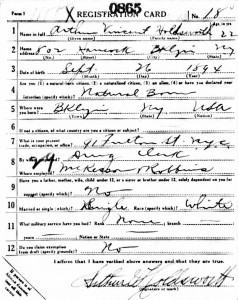 Form 1
0865
X REGISTRATION CARD No. 18
1 Name in full Arthur Vincent Holdsworth 22
(Given name) (Family name) Age, in yrs.
2 Home address 802 Hancock Bklyn Ny
(No.) (Street) (City) (State)
3 Date of birth Sept 26 1894
(Month) (Day) (Year)
4 Are you (1) a natural-born citizen, (2) a naturalized citizen, (3) an alien, (4) or have you declared your intention (specify which)?
Natural Born
5 Where were you born? Bklyn Ny USA
(Town) (State) (Nation)
6 If not a citizen, of what country are you a citizen or subject?
7 What is your present trade, occupation, or office? 91 Fulton St NYC
Drug Clerk
8 By whom employed? McKesson Robbins
Where employed?
9 Have you a father, mother, wife, child under 12, or a sister or brother under 12, solely dependent on you for support (specify which)?
No
10 Married or single (which)? Single Race (specify which)? White
11 What military service have you had? Rank None ; branch
years ; Nation or State
12 Do you claim exemption from draft (specify grounds)? No
I affirm that I have verified above answers and that they are true.
Arthur V Holdsworth
(Signature or mark)